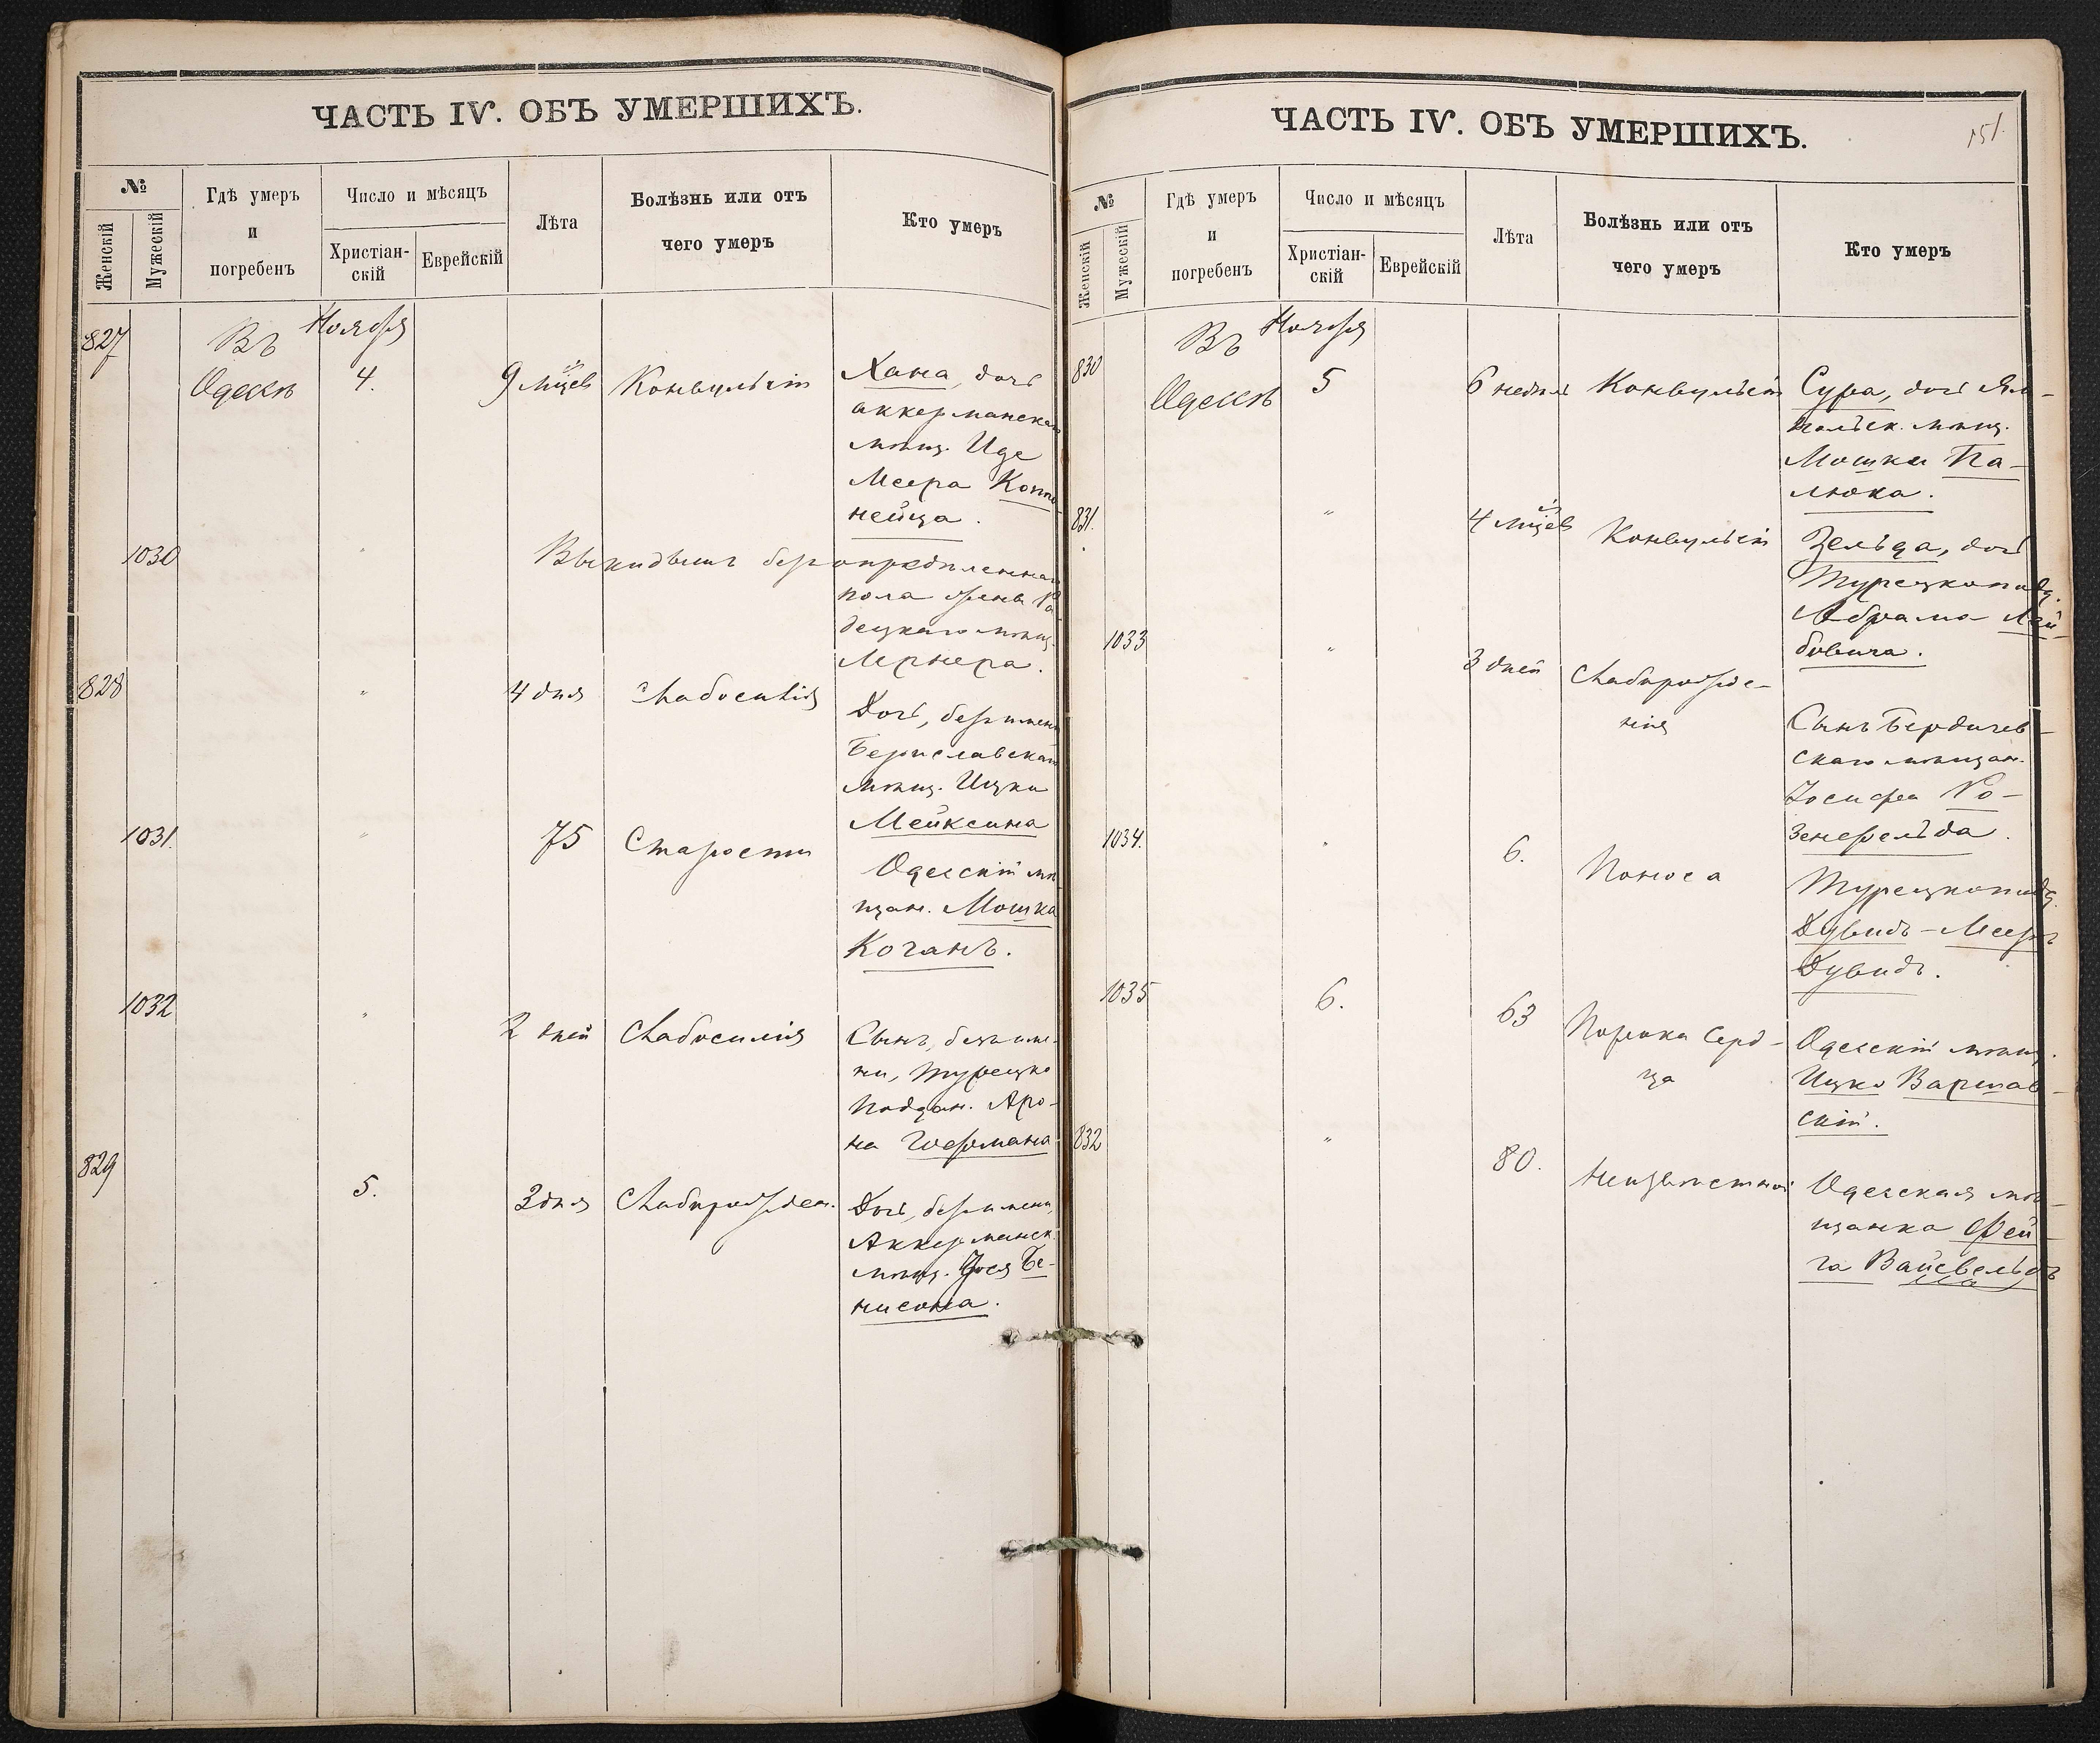 ЧАСТЬ IV. ОБЪ УМЕРШИХЪ.
№
Женскій
Мужескій
Гдѣ умеръ
и
погребенъ
Число и мѣсяцъ
Христіан-
скій
Еврейскій
Лѣта
Болѣзнь или отъ
чего умеръ
Кто умеръ
827
Въ Ноября
Одессѣ 4. 9 мцевъ Конвульсіи Хана, дочь
аккерманскаго
мѣщ. Иде
Меера Копо-
нейца.
1030 " Выкидышъ безъ опредѣленнаго
пола жены Ра-
децкаго мѣщ.
Лернера.
828 " 4 дня Слабосилія Дочь, безъ имени
Бериславскаго
мѣщ. Ицки
Мейксина
1031. " 75 Старости Одесскій мѣ-
щан. Мошка
Коганъ.
1032 " 2 дней Слабосилія Сынъ, безъ име-
ни, турецко
поддан. Аро-
на Гофмана
829 5. 3 дня Слаборожден. Дочь, безъ имени,
Аккерманск.
мѣщ. Іося Бе-
нисона.
ЧАСТЬ IV. ОБЪ УМЕРШИХЪ.
151.
№
Женскій
Мужескій
Гдѣ умеръ
и
погребенъ
Число и мѣсяцъ
Христіан-
скій
Еврейскій
Лѣта
Болѣзнь или отъ
чего умеръ
Кто умеръ
Въ Ноября
830 Одессѣ 5 6 недѣль Конвульсіи Сура, дочь Ям-
польск. мѣщ.
Мошки Па-
люка.
831. " 4 мцевъ Конвульсіи Зельда, дочь
Турецкоподд.
Абрама Лей-
бовича.
1033 " 3 дней Слаборожде-
нія
Сынъ Бердичев-
скаго мѣщан.
Іосифа Ро-
зенфельда.
1034. " 6. Поноса Турецкоподд.
Дувидъ-Мееръ
Дувидъ.
1035 6. 63 Порока серд-
ца
Одесскій мѣщ.
Ицко Варшав-
скій.
832 " 80. Неизвѣстной Одесская мѣ-
щанка Фей-
га Вайсвельдъ